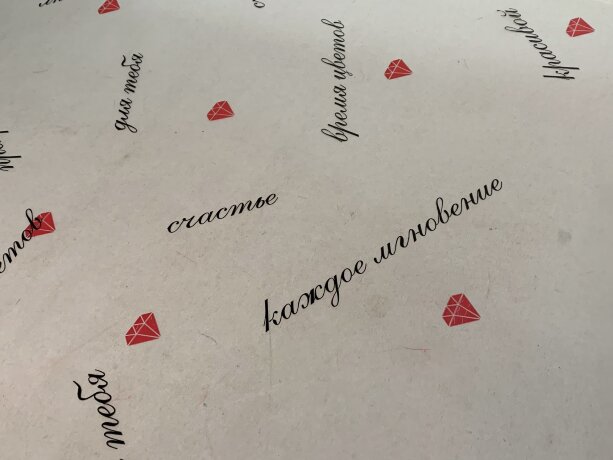 для тебя
время цветов
красивой
счастье
каждое мгновение
тебя